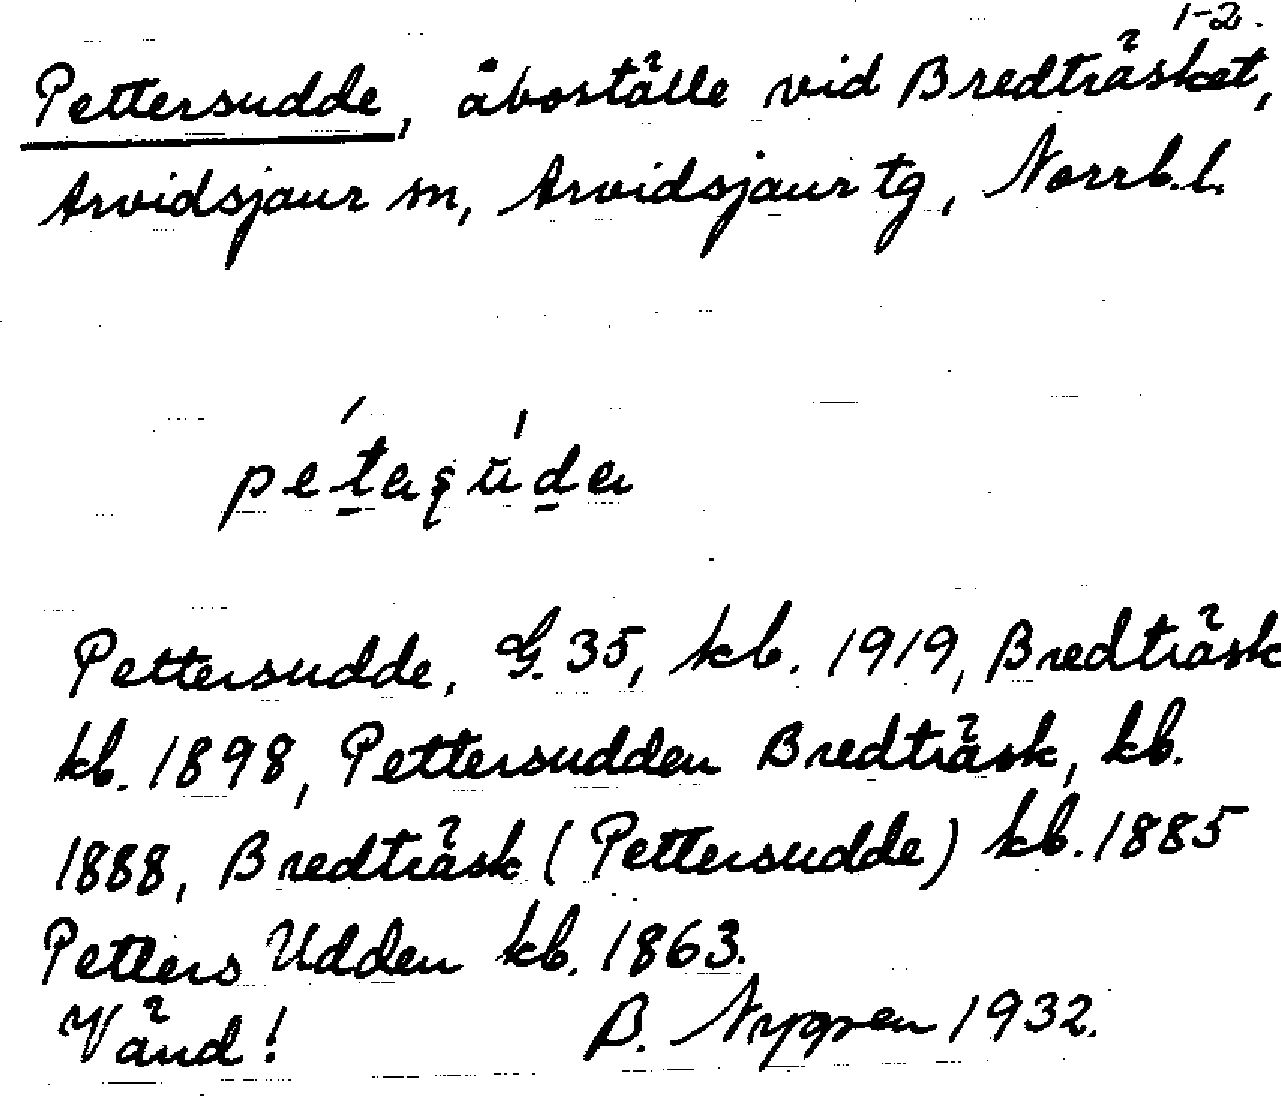 1-2.
Pettersudde, åboställe vid Bredträsket,
Arvidsjaur sn, Arvidsjaur tg, Norrb.l.
Pettersudde, G. 35, kb. 1919, Bredträsk
kb. 1898, Pettersudden Bredträsk, kb.
1888, Bredträsk (Pettersudde) kb. 1885
Petters Udden kb. 1863.
Vänd! B. Nygren 1932.